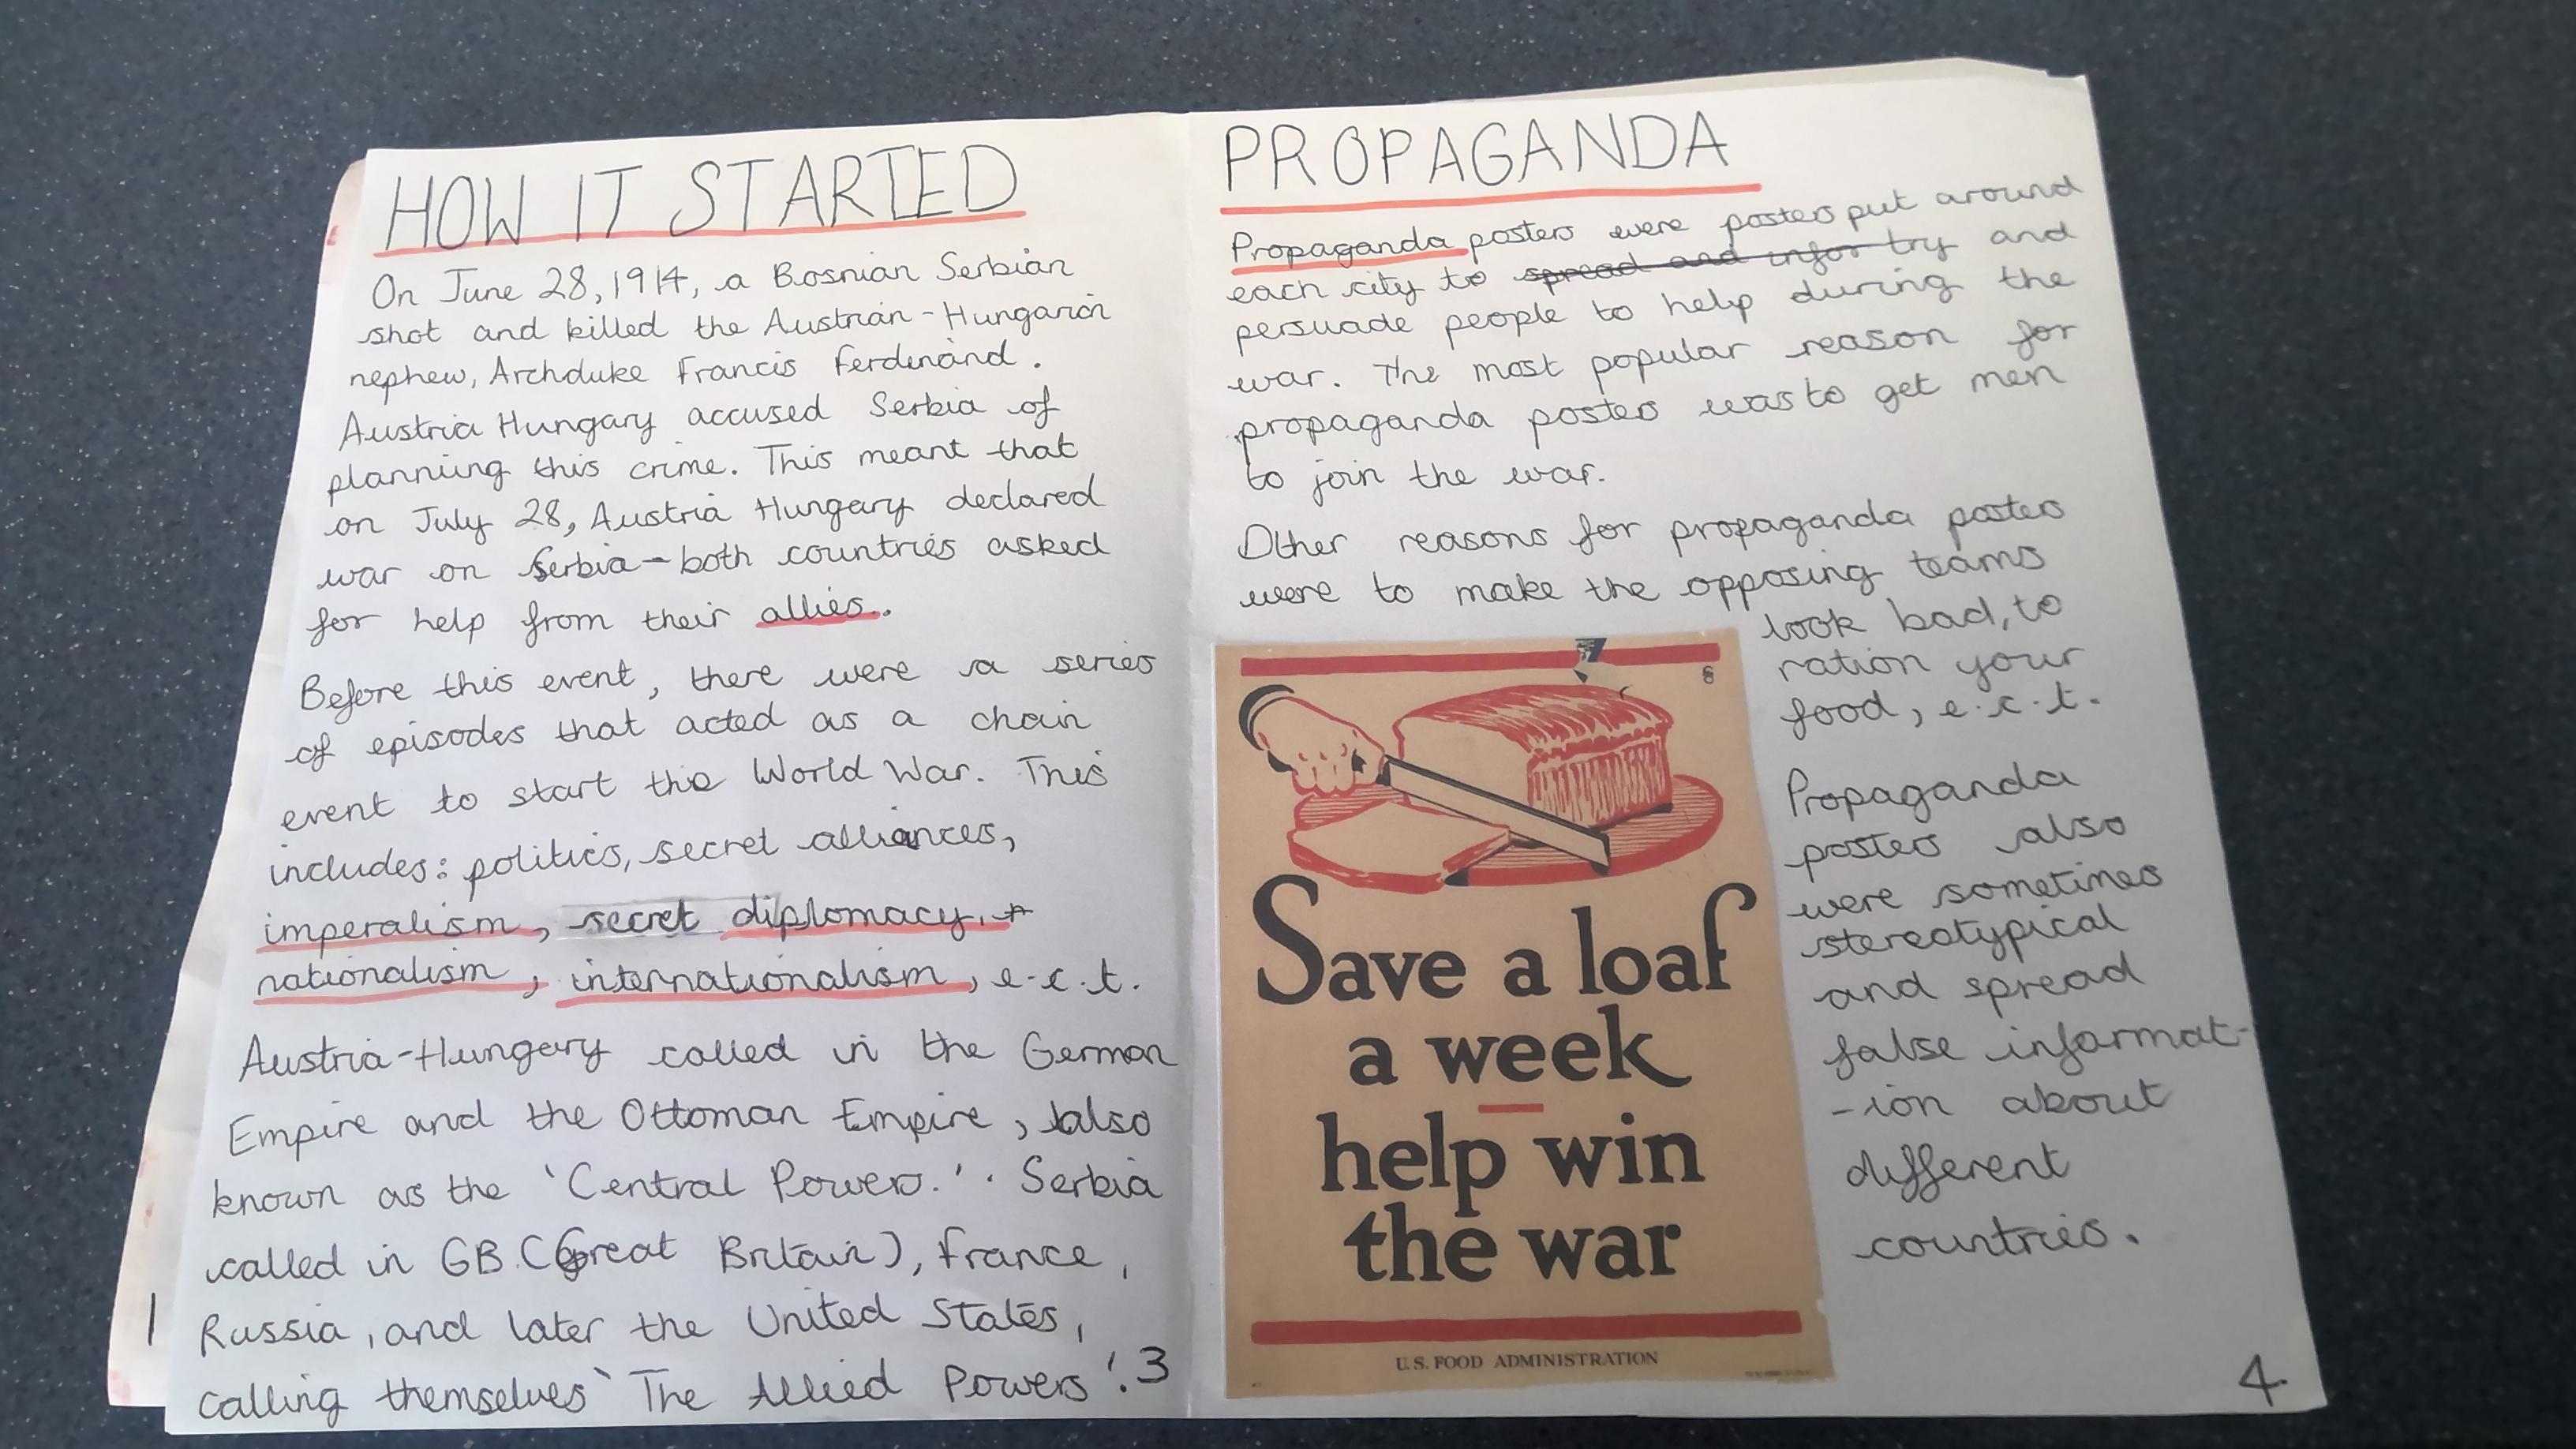 HOW IT STARTED
On June 28, 1914, a Bosnian Serbian
shot and killed the Austrian-Hungarian
nephew, Archduke Francis Ferdinand.
Austria Hungary accused Serbia of
planning this crime. This meant that
on July 28, Austria Hungary declared
war on Serbia - both countries asked
for help from their allies.
Before this event, there were a series
of episodes that acted as a chain
event to start the World War. This
includes: politics, secret alliances,
imperalism, secret diplomacy,
nationalism, internationalism, e.c.t.
Austria-Hungary called in the German
Empire and the Ottoman Empire, also
known as the 'Central Powers.'. Serbia
called in GB (Great Britain), France,
Russia, and later the United States,
calling themselves 'The Allied Powers'.
3
1
PROPAGANDA
Propaganda posters were posters put around
each city to spread and infor try and
persuade people to help during the
war. The most popular reason for
propaganda posters was to get men
to join the war.
Other reasons for propaganda posters
were to make the opposing teams
look bad, to
ration your
food, e.c.t.
Propaganda
posters also
were sometimes
stereotypical
and spread
false informat-
-ion about
different
countries.
4
Save a loaf
a week
help win
the war
U.S. FOOD ADMINISTRATION